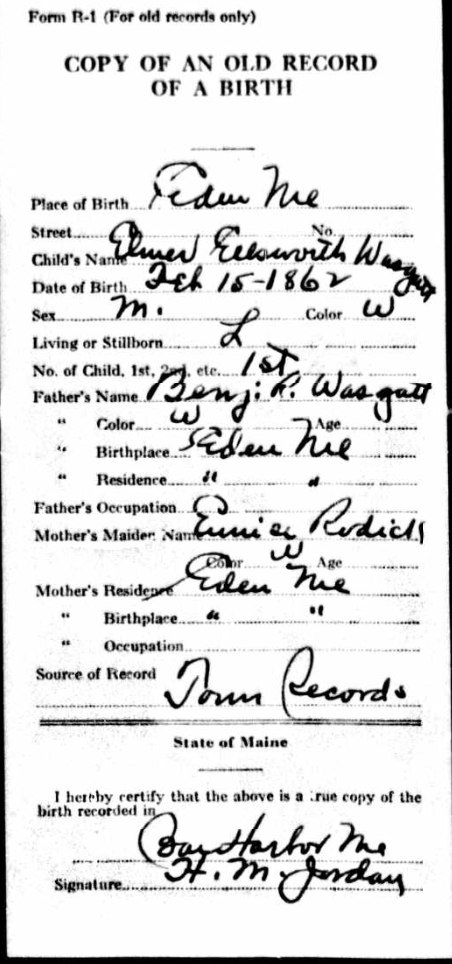 Form R-1 (For old records only)
COPY OF AN OLD RECORD
OF A BIRTH
Place of Birth Eden Me
Street No.
Child's Name Elmer Ellsworth Wasgatt
Date of Birth Feb 15-1862
Sex M. Color W
Living or Stillborn L
No. of Child, 1st, 2nd, etc. 1st
Father's Name Benj. R. Wasgatt
" Color W Age
" Birthplace Eden Me
" Residence " "
Father's Occupation
Mother's Maiden Name Eunice Rodick
Color W Age
Mother's Residence Eden Me
" Birthplace " "
" Occupation
Source of Record Town Records
State of Maine
I hereby certify that the above is a true copy of the
birth recorded in
Bar Harbor Me
Signature H. M. Jordan